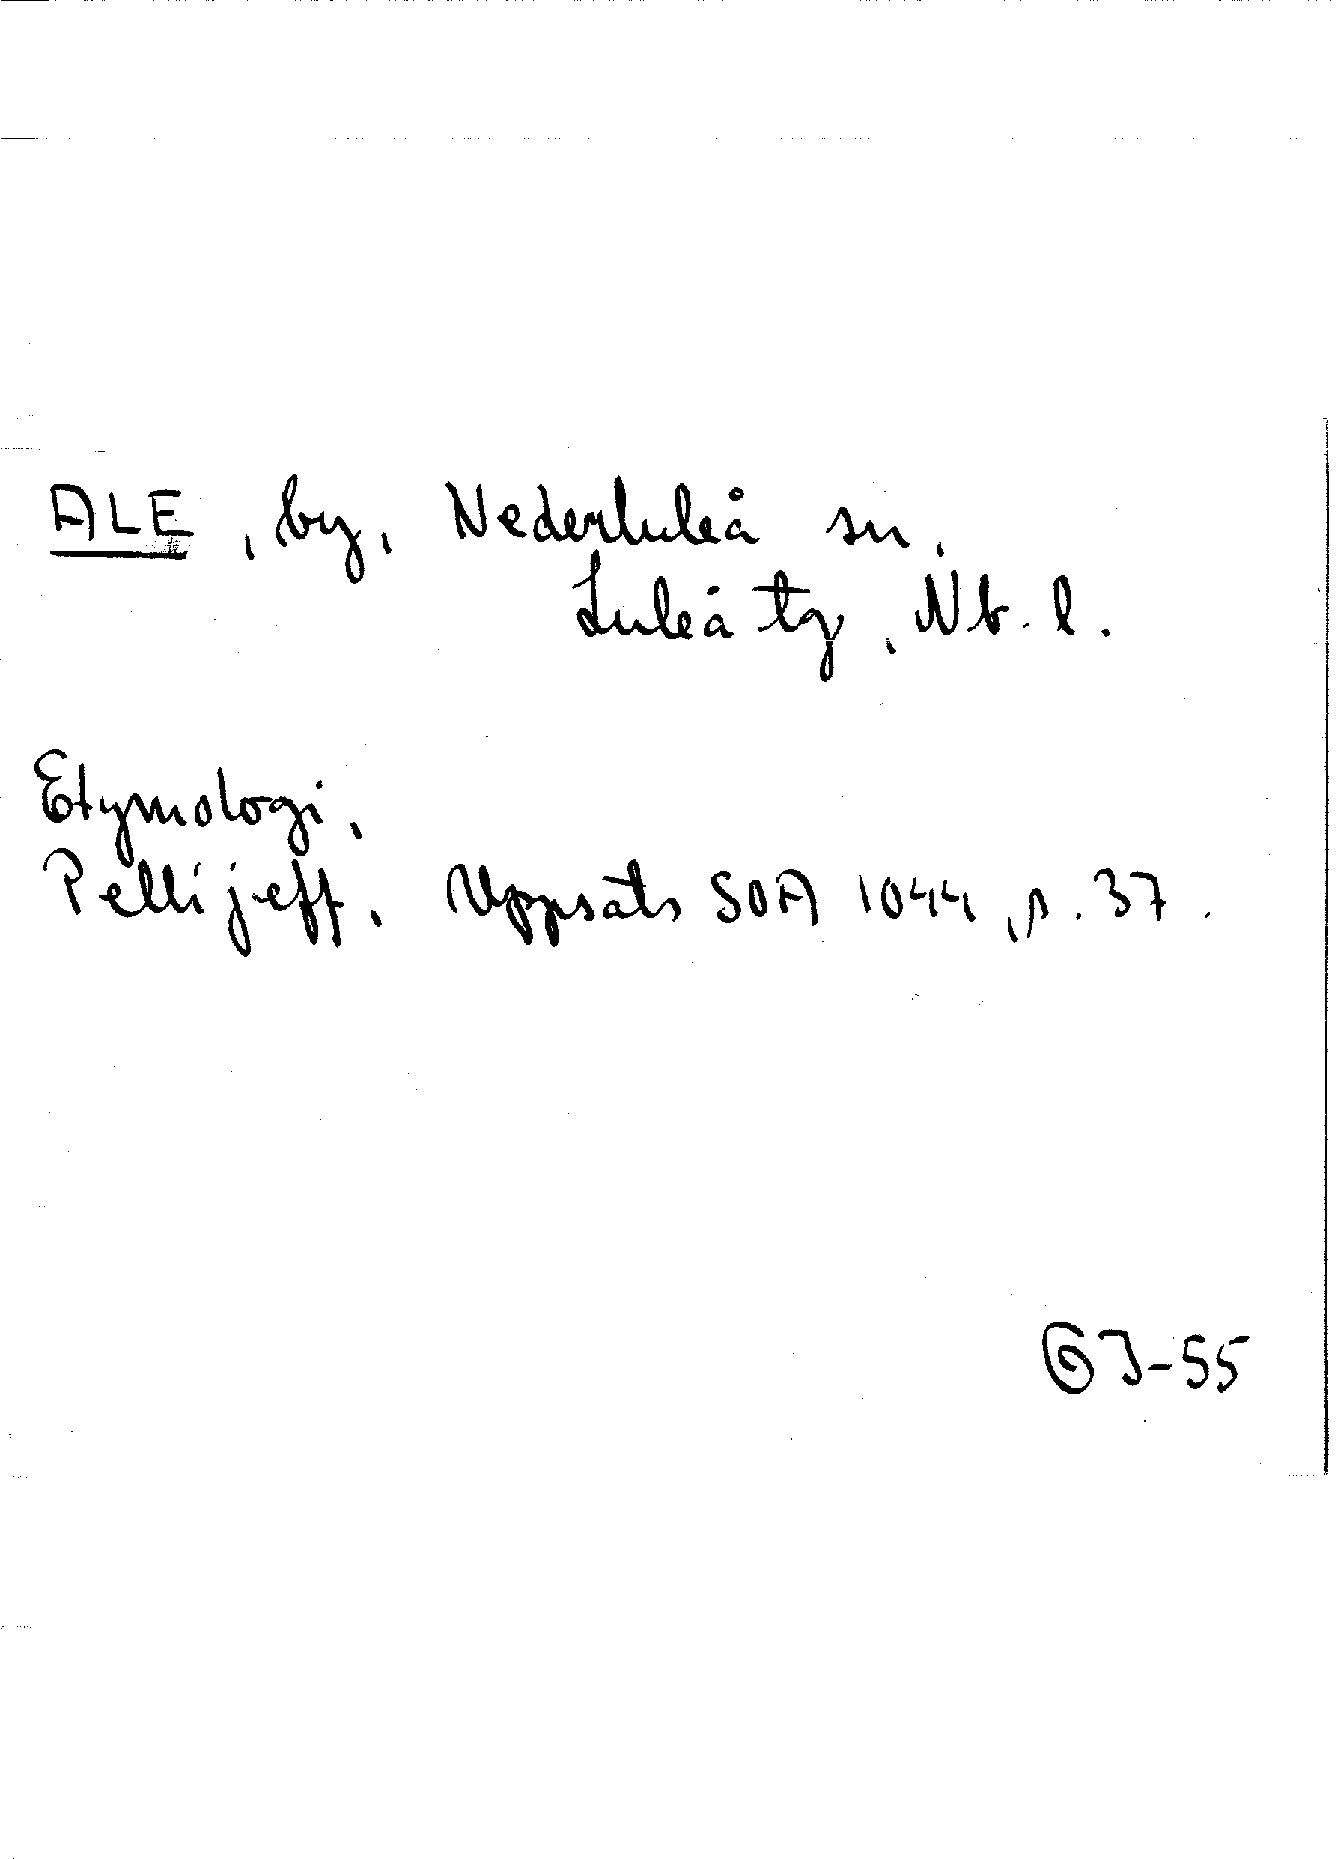 ALE, by, Nederluleå sn,
Luleå tg, Nb. l.
Etymologi,
Pellijeff, Uppsats SOA 1044, s. 37.
GJ-55